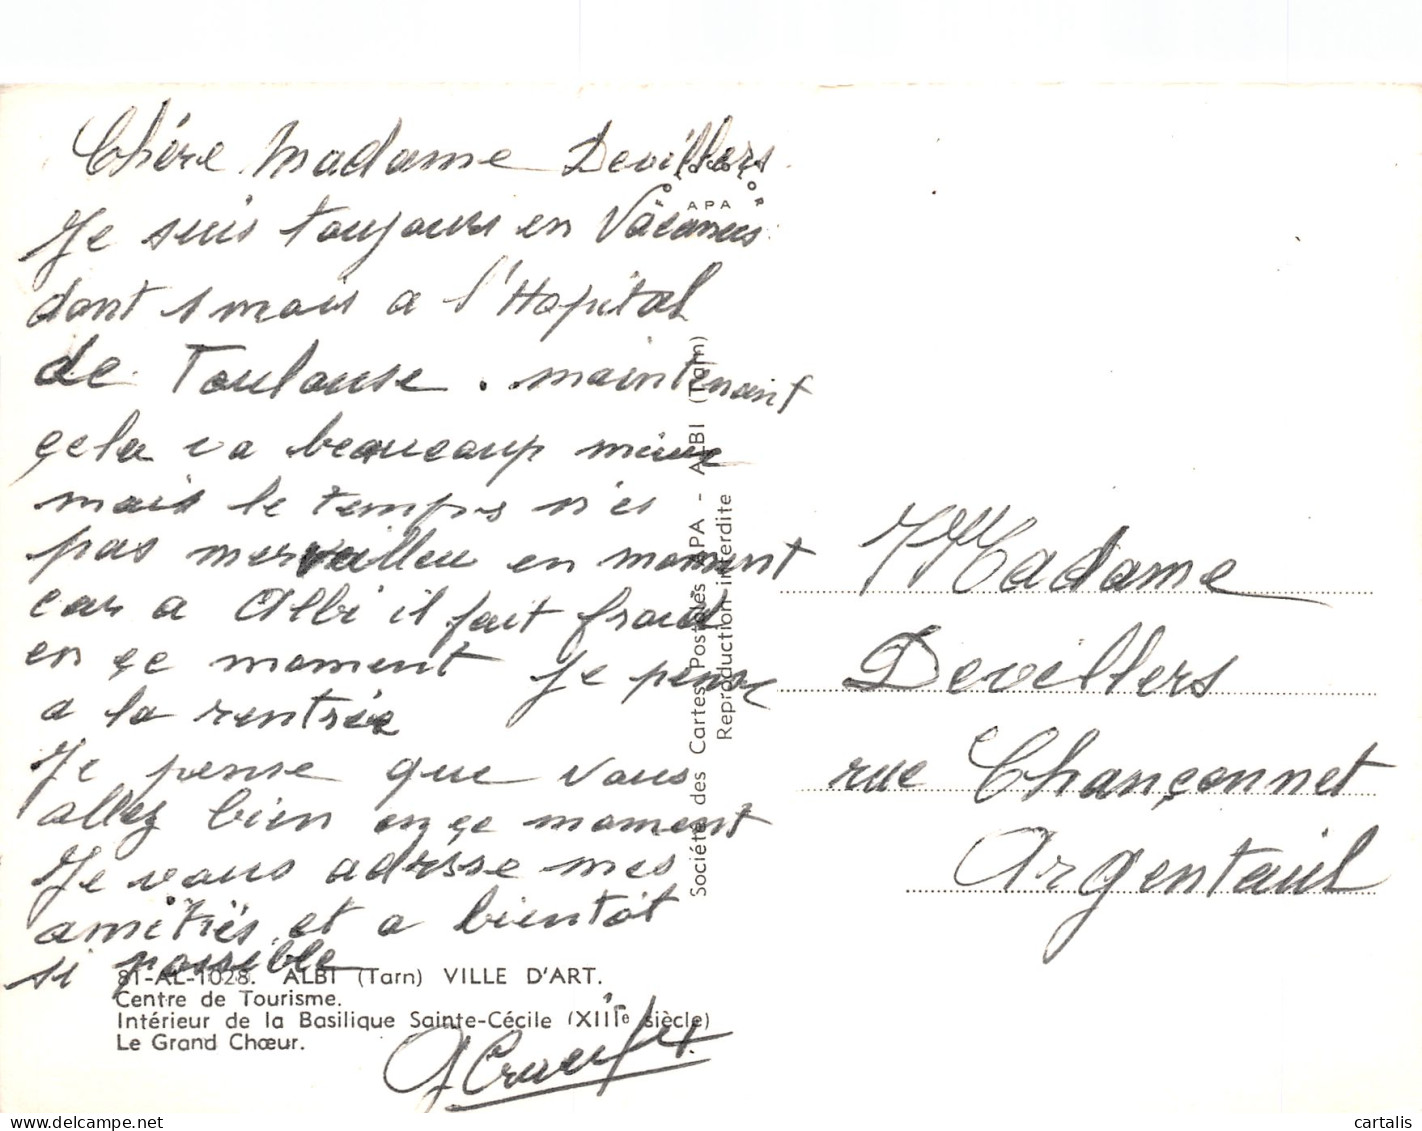 Chère Madame Devillers
Je suis toujours en Vacances
dont 1 mois a l'Hopital
de Toulouse. maintenant
çela va beaucoup mieux
mais le temps n'es
pas merveilleu en moment
car a Albi il fait froid
en çe moment je pense
a la rentrée
Je pense que vous
allez bien en çe moment
Je vous adrsse mes
amitiés et a bientôt
si possible
81-AL-1028. ALBI (Tarn) VILLE D'ART.
Centre de Tourisme.
Intérieur de la Basilique Sainte-Cécile (XIIIe siècle)
Le Grand Chœur.
APA
Société des Cartes Postales APA - ALBI (Tarn)
Reproduction interdite
Madame
Devillers
rue Chançonnet
Argenteuil
delcampe.net
cartalis